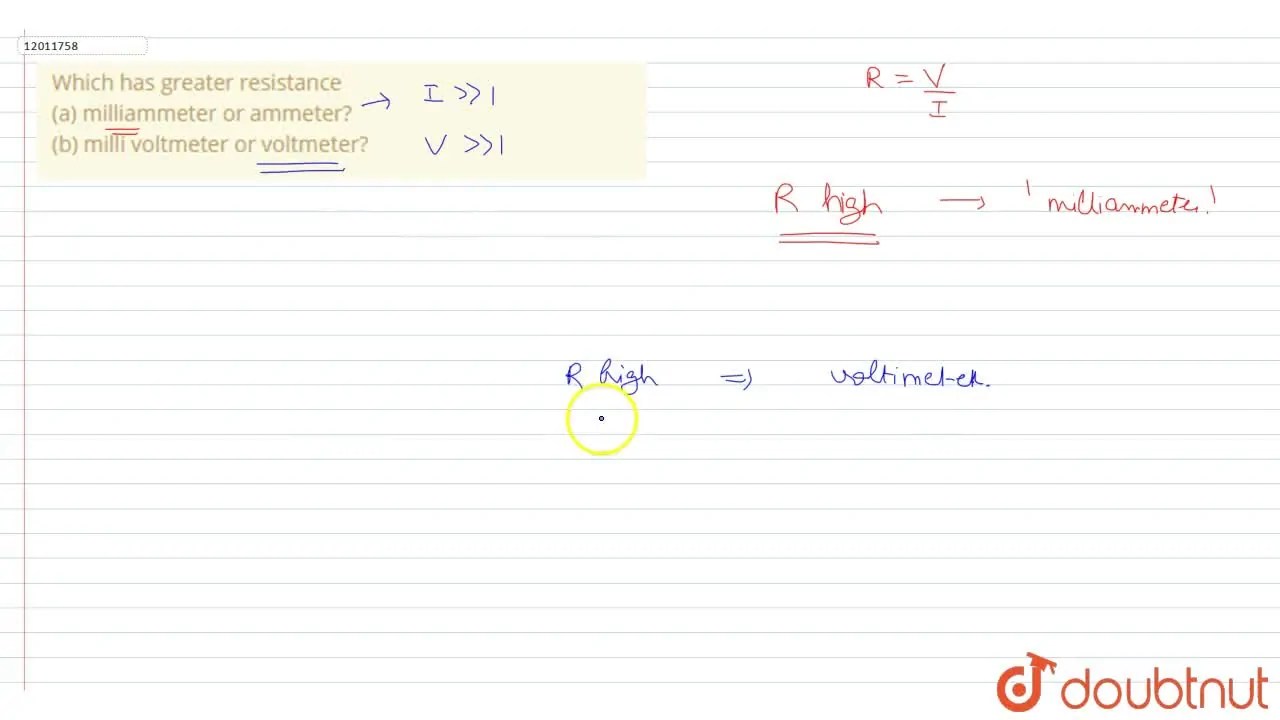 12011758
Which has greater resistance
(a) milliammeter or ammeter? → I >>1
(b) milli voltmeter or voltmeter? V >>1
R = V/I
R high → 'milliammeter.'
R high ⇒ voltimeter.
doubtnut